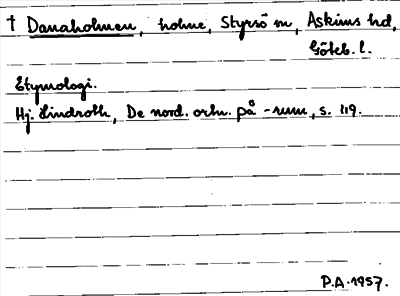 † Danaholmen, holme, Styrsö sn, Askims hd,
Göteb. l.
Etymologi.
Hj. Lindroth, De nord. ortn. på -rum, s. 119.
P.A. 1957.